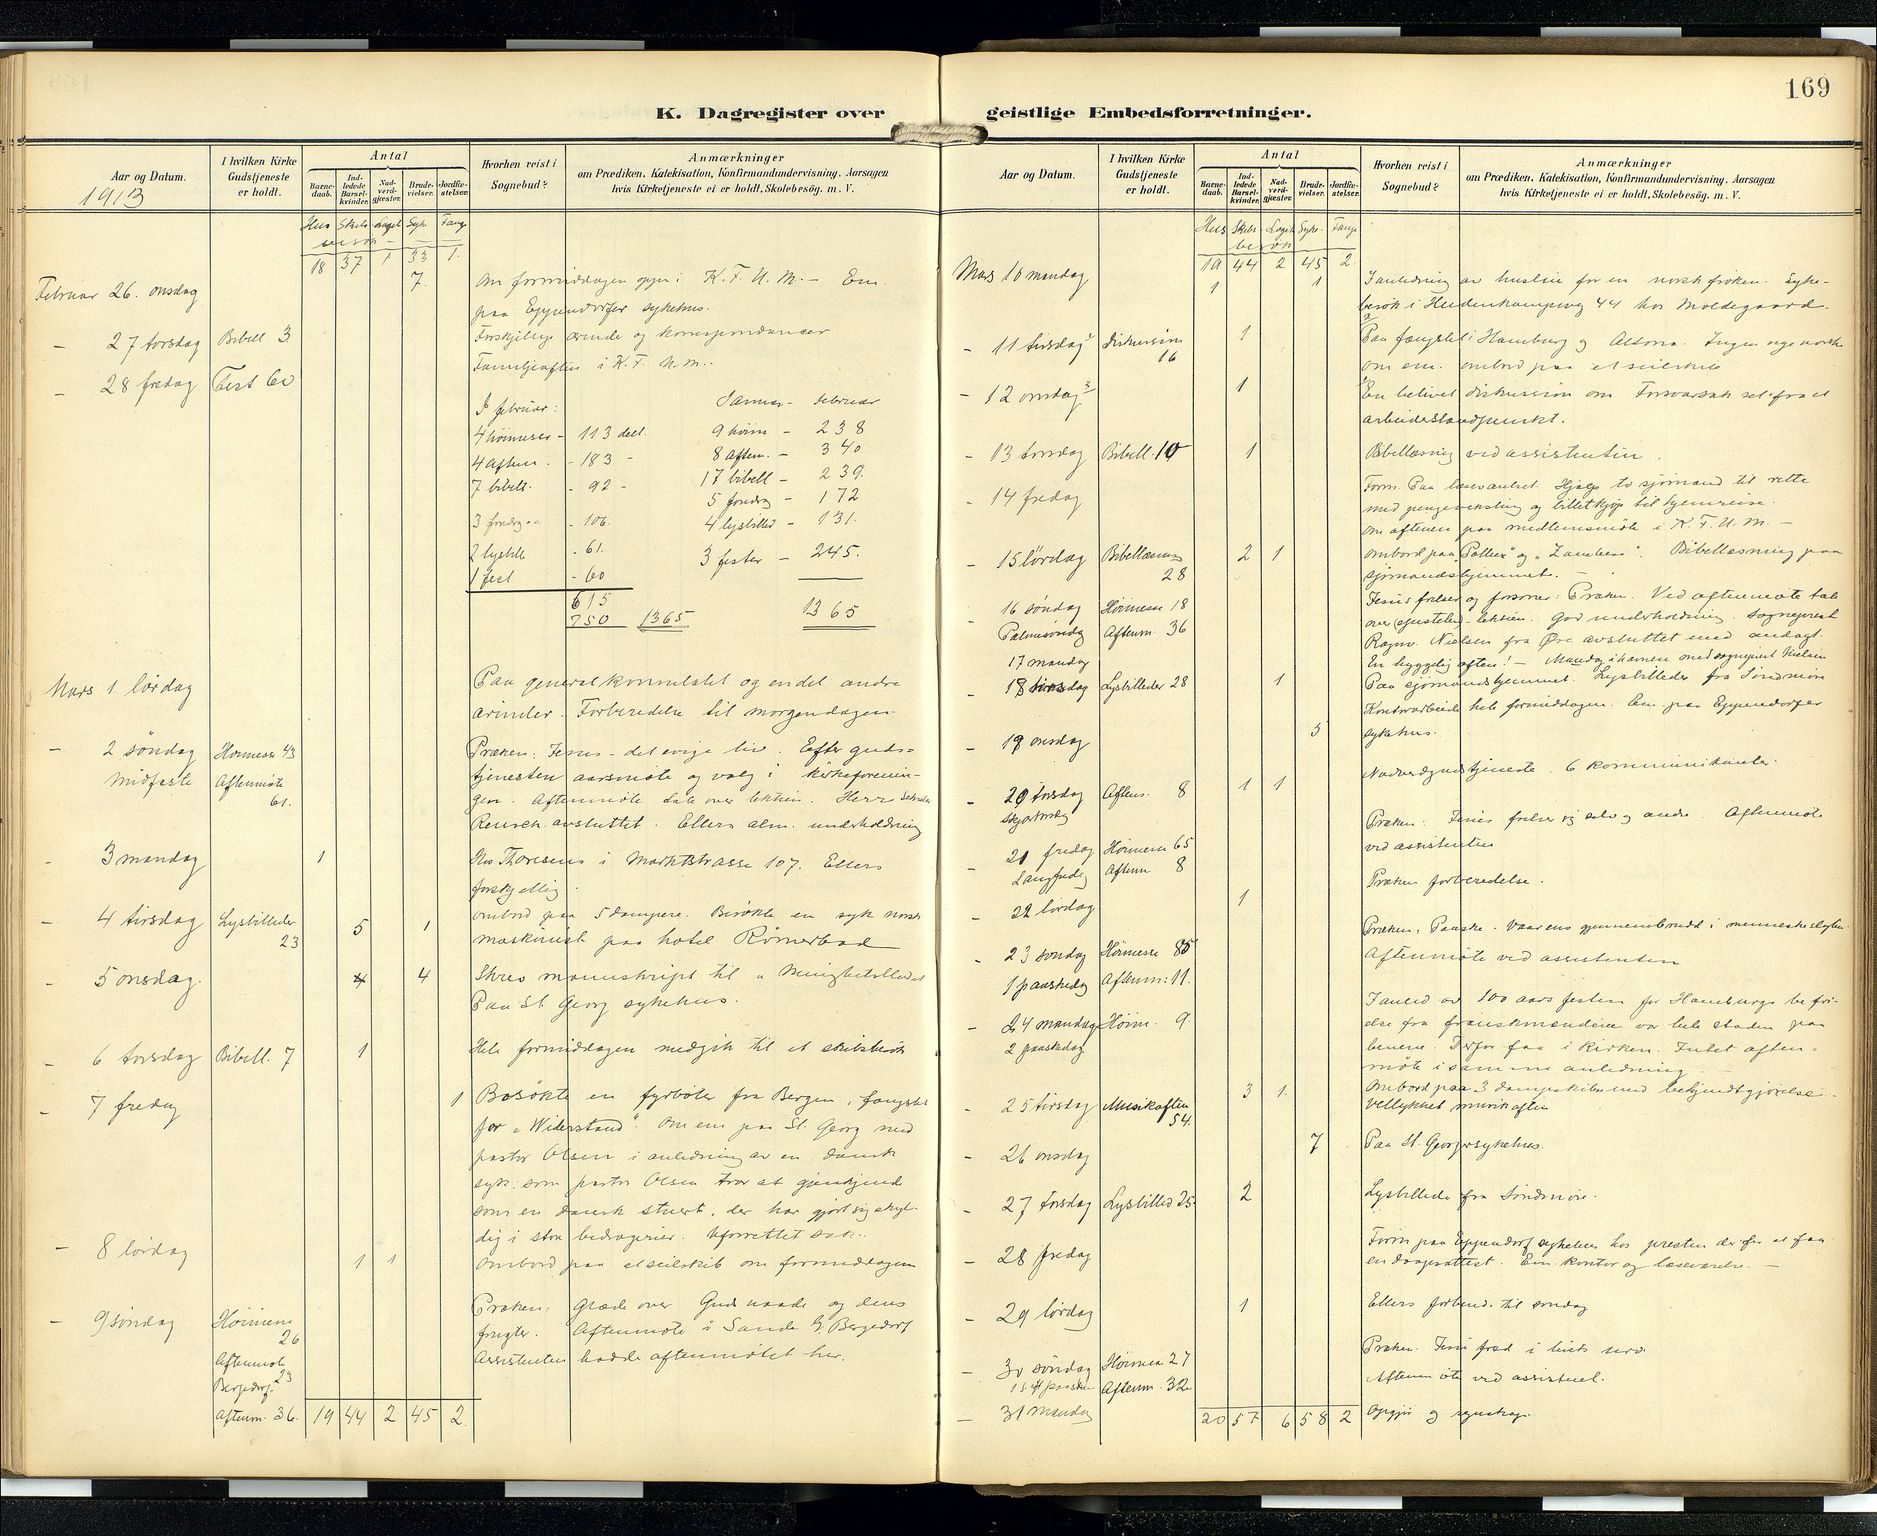 169
K. Dagregister over geistlige Embedsforretninger.
Aar og Datum.
1913
I hvilken Kirke
Gudstjeneste
er holdt.
Antal
Barne-
daab.
Ind-
ledede
Barsel-
kvinder.
Nad-
verd-
gjæster.
Brude-
vielser.
Jordfæ-
stelser.
Hvorhen reist i
Sognebud?
Anmærkninger
om Prædiken, Katekisation, Konfirmandundervisning, Aarsagen
hvis Kirketjeneste ei er holdt, Skolebesög. m. V.
Hus Skibs Syke Fange
18 37 1 33 1.
Februar 26. onsdag 7. Om formiddagen oppe i K. F. U. M. – Em
paa Eppendorfer sykehus.
– 27 torsdag Bibell 3. Forskjellige ærinde og korrespondancer
Familjeaften i K. F. U. M. –
– 28 fredag Fest 60
I februar: Januar – Februar
4 høimesser – 113 delt. 9 høim – 238
4 aftenm. – 183 – 8 aften. – 340
7 bibell. – 92 – 17 bibell – 239.
3 foredrag – 106. 5 foredr – 172
2 lysbille – 61. 4 lysbilled – 131.
1 fest – 60 3 fester – 245.
615 1365
750 1365
Mars 1 lørdag Paa generalkonsulatet og en del andre
ærinder. Forberedelse til morgendagen.
– 2 søndag Høimesse 43 Præken: Jesus – det evige liv. Efter guds-
Midfaste Aftenmøte tjenesten aarsmøte og valg i kirkeforenin-
61. gen. Aftenmøte tale over lektien. Herr
Reusch avsluttet. Ellers alm. underholdning
– 3 mandag 1 Hos Thoresens i Marktstrasse 107. Ellers
forskjellig.
– 4 tirsdag Lysbilleder 5 1 ombord paa 5 dampere. Besøkte en syk norsk
23 maskinist paa hotel Römerbad
– 5 onsdag. 4 Skrev manuskript til „Menighetsbladet
Paa St. Georg sykehus.
– 6 torsdag Bibell. 7 1 Hele formiddagen medgik til et skibsbesøk
– 7 fredag 1 Besökte en fyrbøter fra Bergen, fængslet
for „Widerstand". Om em paa St. Georg med
pastor Olsen i anledning av en dansk
syk. som pastor Olsen tror at gjenkjend
som en dansk stuert, der har gjort sig skyl-
dig i store bedragerier. Uforrettet sak.
– 8 lørdag 1 1 Ombord paa et seilskib om formiddagen
– 9 søndag Høimesse Præken: Glæde over Guds naade og dens
26 frugter. Aftenmøte i Sande b/ Bergedorf
Aftenmøte Assistenten hadde aftenmøtet her.
Bergedorf 23
Aftenm. 36. 19 44 2 45 2.
Aar og Datum.
I hvilken Kirke
Gudstjeneste
er holdt.
Antal
Barne-
daab.
Ind-
ledede
Barsel-
kvinder.
Nad-
verd-
gjæster.
Brude-
vielser.
Jordfæ-
stelser.
Hvorhen reist i
Sognebud?
Anmærkninger
om Prædiken, Katekisation, Konfirmandundervisning, Aarsagen
hvis Kirketjeneste ei er holdt, Skolebesög. m. V.
Hus Skibs Logit Syke- Fange
besøk
19 44 2 45 2.
Mars 10 mandag 1 1 I anledning av husleie for en norsk frøken. Syke-
besøk i Heidenkampsweg 44 hos Moldegaard
– 11 tirsdag Diskussion 1 Paa fængslet i Hamburg og Altona. Ingen nye norske
16 om em. ombord paa et seilskib
– 12 onsdag 1 En belivet diskussion om Forsvarssak set fra et
arbeiderstandpunkt.
– 13 torsdag Bibell. 10 1 Bibellæsning ved assistenten.
– 14 fredag Form. Paa læseværelset. Hjalp to sjømænd til rette
med pengeveksling og billetkjøp til hjemreise.
om aftenen paa medlemsmøte i K. F. U. M. –
– 15 lørdag Bibellæsning 2 1 ombord paa „Pollux" og „Zambesi". Bibellæsning paa
28 sjømandshjemmet. –
– 16 søndag Høimesse 18 Jesus frelser og forsoner: Præken. Ved aftenmøte tale
Palmesöndag Aftenm. 36 over epistelen – lektien. God underholdning. Sogneprest
Ragnv. Nielsen fra Øre avsluttet med andagt.
17 mandag En hyggelig aften! – Mandag i havnen med sogneprest Nielsen
– 18 tirsdag Lysbilleder 28 1 Paa sjømandshjemmet. Lysbilleder fra Søndmøre
Kontorarbeide hele formiddagen. Em. paa Eppendorfer
– 19 onsdag 5 sykehus.
– 20 torsdag Aftens. 8 1 1 Nadverdgudstjeneste. 6 kommunikanter.
Skjærtorsdag
– 21 fredag Høimesse 65 Præken: Jesus frelser sig selv og andre. Aftenmøte
Langfredag Aftenm 8 ved assistenten
– 22 lørdag 1 Præken forberedelse.
– 23 søndag Høimesse 85 Præken: Paaske – Vaarens gjennembrudd i menneskelivet.
1 paaskedag Aftenm: 11. Aftenmøte ved assistenten
– 24 mandag Høim. 9. I anled av 100 aars festen for Hamburgs befri-
2 paaskedag else fra franskmændene var hele staden paa
benene. Derfor faa i kirken. Intet aften-
møte i samme anledning. –
– 25 tirsdag Musikaften 3 1. Ombord paa 3 dampskibe med bekjendtgjørelse.
54. Vellykket musikaften
– 26 onsdag 7 Paa St. Georg sykehus.
– 27 torsdag Lysbilled 25. 2 Lysbillede fra Søndmøre.
– 28 fredag Form paa Eppendorf sykehus hos presten der for at faa
en daapsattest. Em. kontor og læseværelse. –
– 29 lørdag 1 Ellers forbered. til søndag
– 30 søndag Høimesse 27 Præken. Jesu fred i livets
1 s. e. paaske Aftenm. 32 Aftenmøte ved assistent.
– 31 mandag 20 57 6 58 2 Opgjør og regnskap.